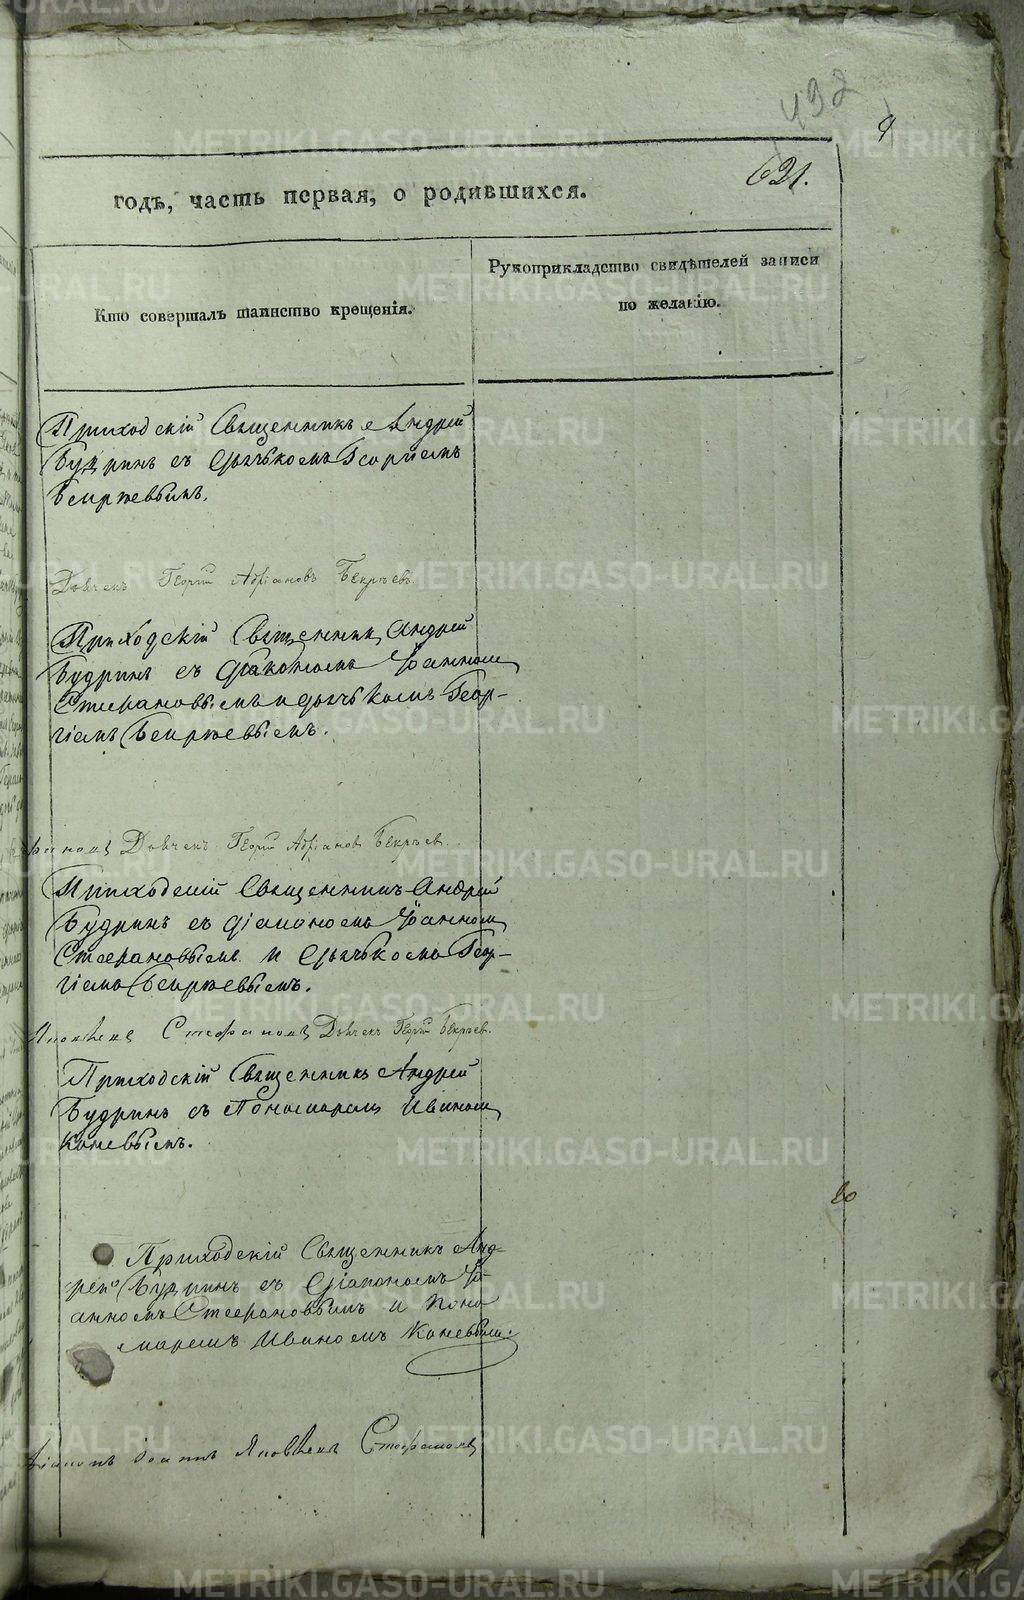 492
9
621.
годъ, часть первая, о родившихся.
Кто совершалъ таинство крещенія.
Рукоприкладство свидѣтелей записи
по желанію.
Приходскій Священникъ Андрей
Будринъ съ дьячькомъ Георгіемъ
Бекряевымъ.
Дьячекъ Георгій Адріановъ Бекряевъ.
Приходскій Священникъ Андрей
Будринъ съ діакономъ Іоанном
Стефановымъ и дьячькомъ Геор-
гіемъ Бекряевымъ.
Дьячекъ Георгій Адріановъ Бекряев.
Приходскій Священникъ Андрей
Будринъ съ діакономъ Іоанном
Стефановымъ и дьячькомъ Геор-
гіемъ Бекряевымъ.
Яковлевъ Стефановъ Дьячекъ Георгій Бекряев.
Приходскій Священникъ Андрей
Будринъ съ Пономаремъ Иваном
Каневымъ.
80
Приходскій Священникъ Анд-
рей Будринъ съ Діакономъ Іо-
анномъ Стефановымъ и Поно
маремъ Иваномъ Каневым.
Діаконъ Іоаннъ Яковлевъ Стефановъ
METRIKI.GASO-URAL.RU